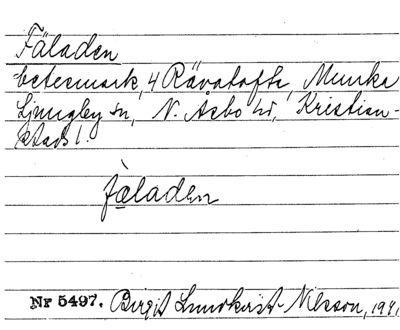 Fäladen
betesmark, 4 Rävatofta, Munka
Ljungby sn, N. Åsbo hd, Kristian-
stads l.
fæ̀laden
Nr 5497. Birgit Lundkvist-Nilsson, 1941